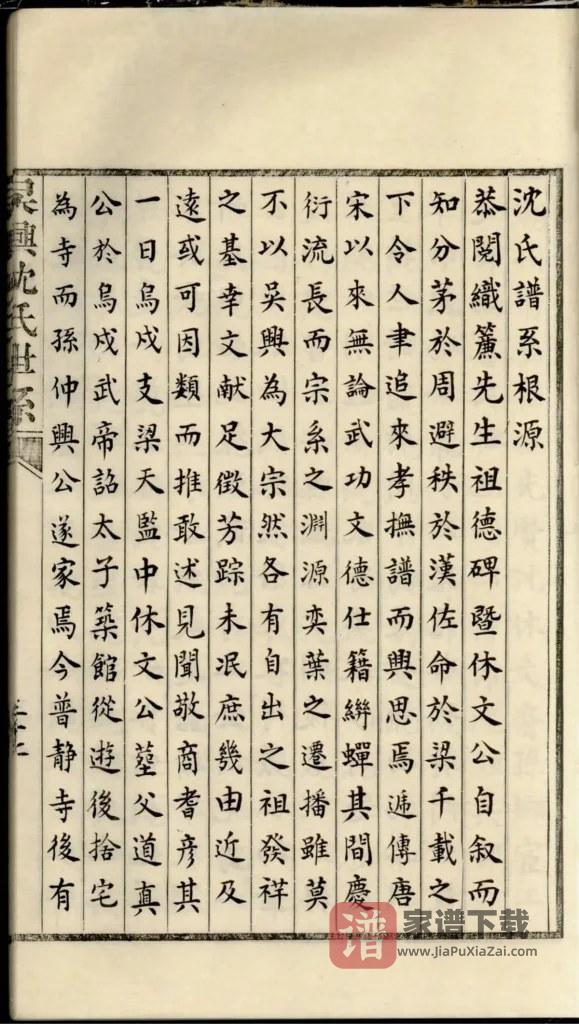 沈氏譜系根源
恭閱織簾先生祖德碑暨休文公自叙而
知分茅於周避秩於漢佐命於梁千載之
下令人聿追來孝撫譜而興思焉遞傳唐
宋以來無論武功文德仕籍緜蟬其間慶
衍流長而宗系之淵源奕葉之遷播雖莫
不以吳興為大宗然各有自出之祖發祥
之基幸文献足徵芳踪未泯庶幾由近及
遠或可因類而推敢述見聞敬商耆彦其
一日烏戍支梁天監中休文公塟父道真
公於烏戍武帝詔太子築館從遊後捨宅
為寺而孫仲興公遂家焉今普静寺後有
吳興沈氏世系
家谱下载
www.JiaPuXiaZai.com
谱